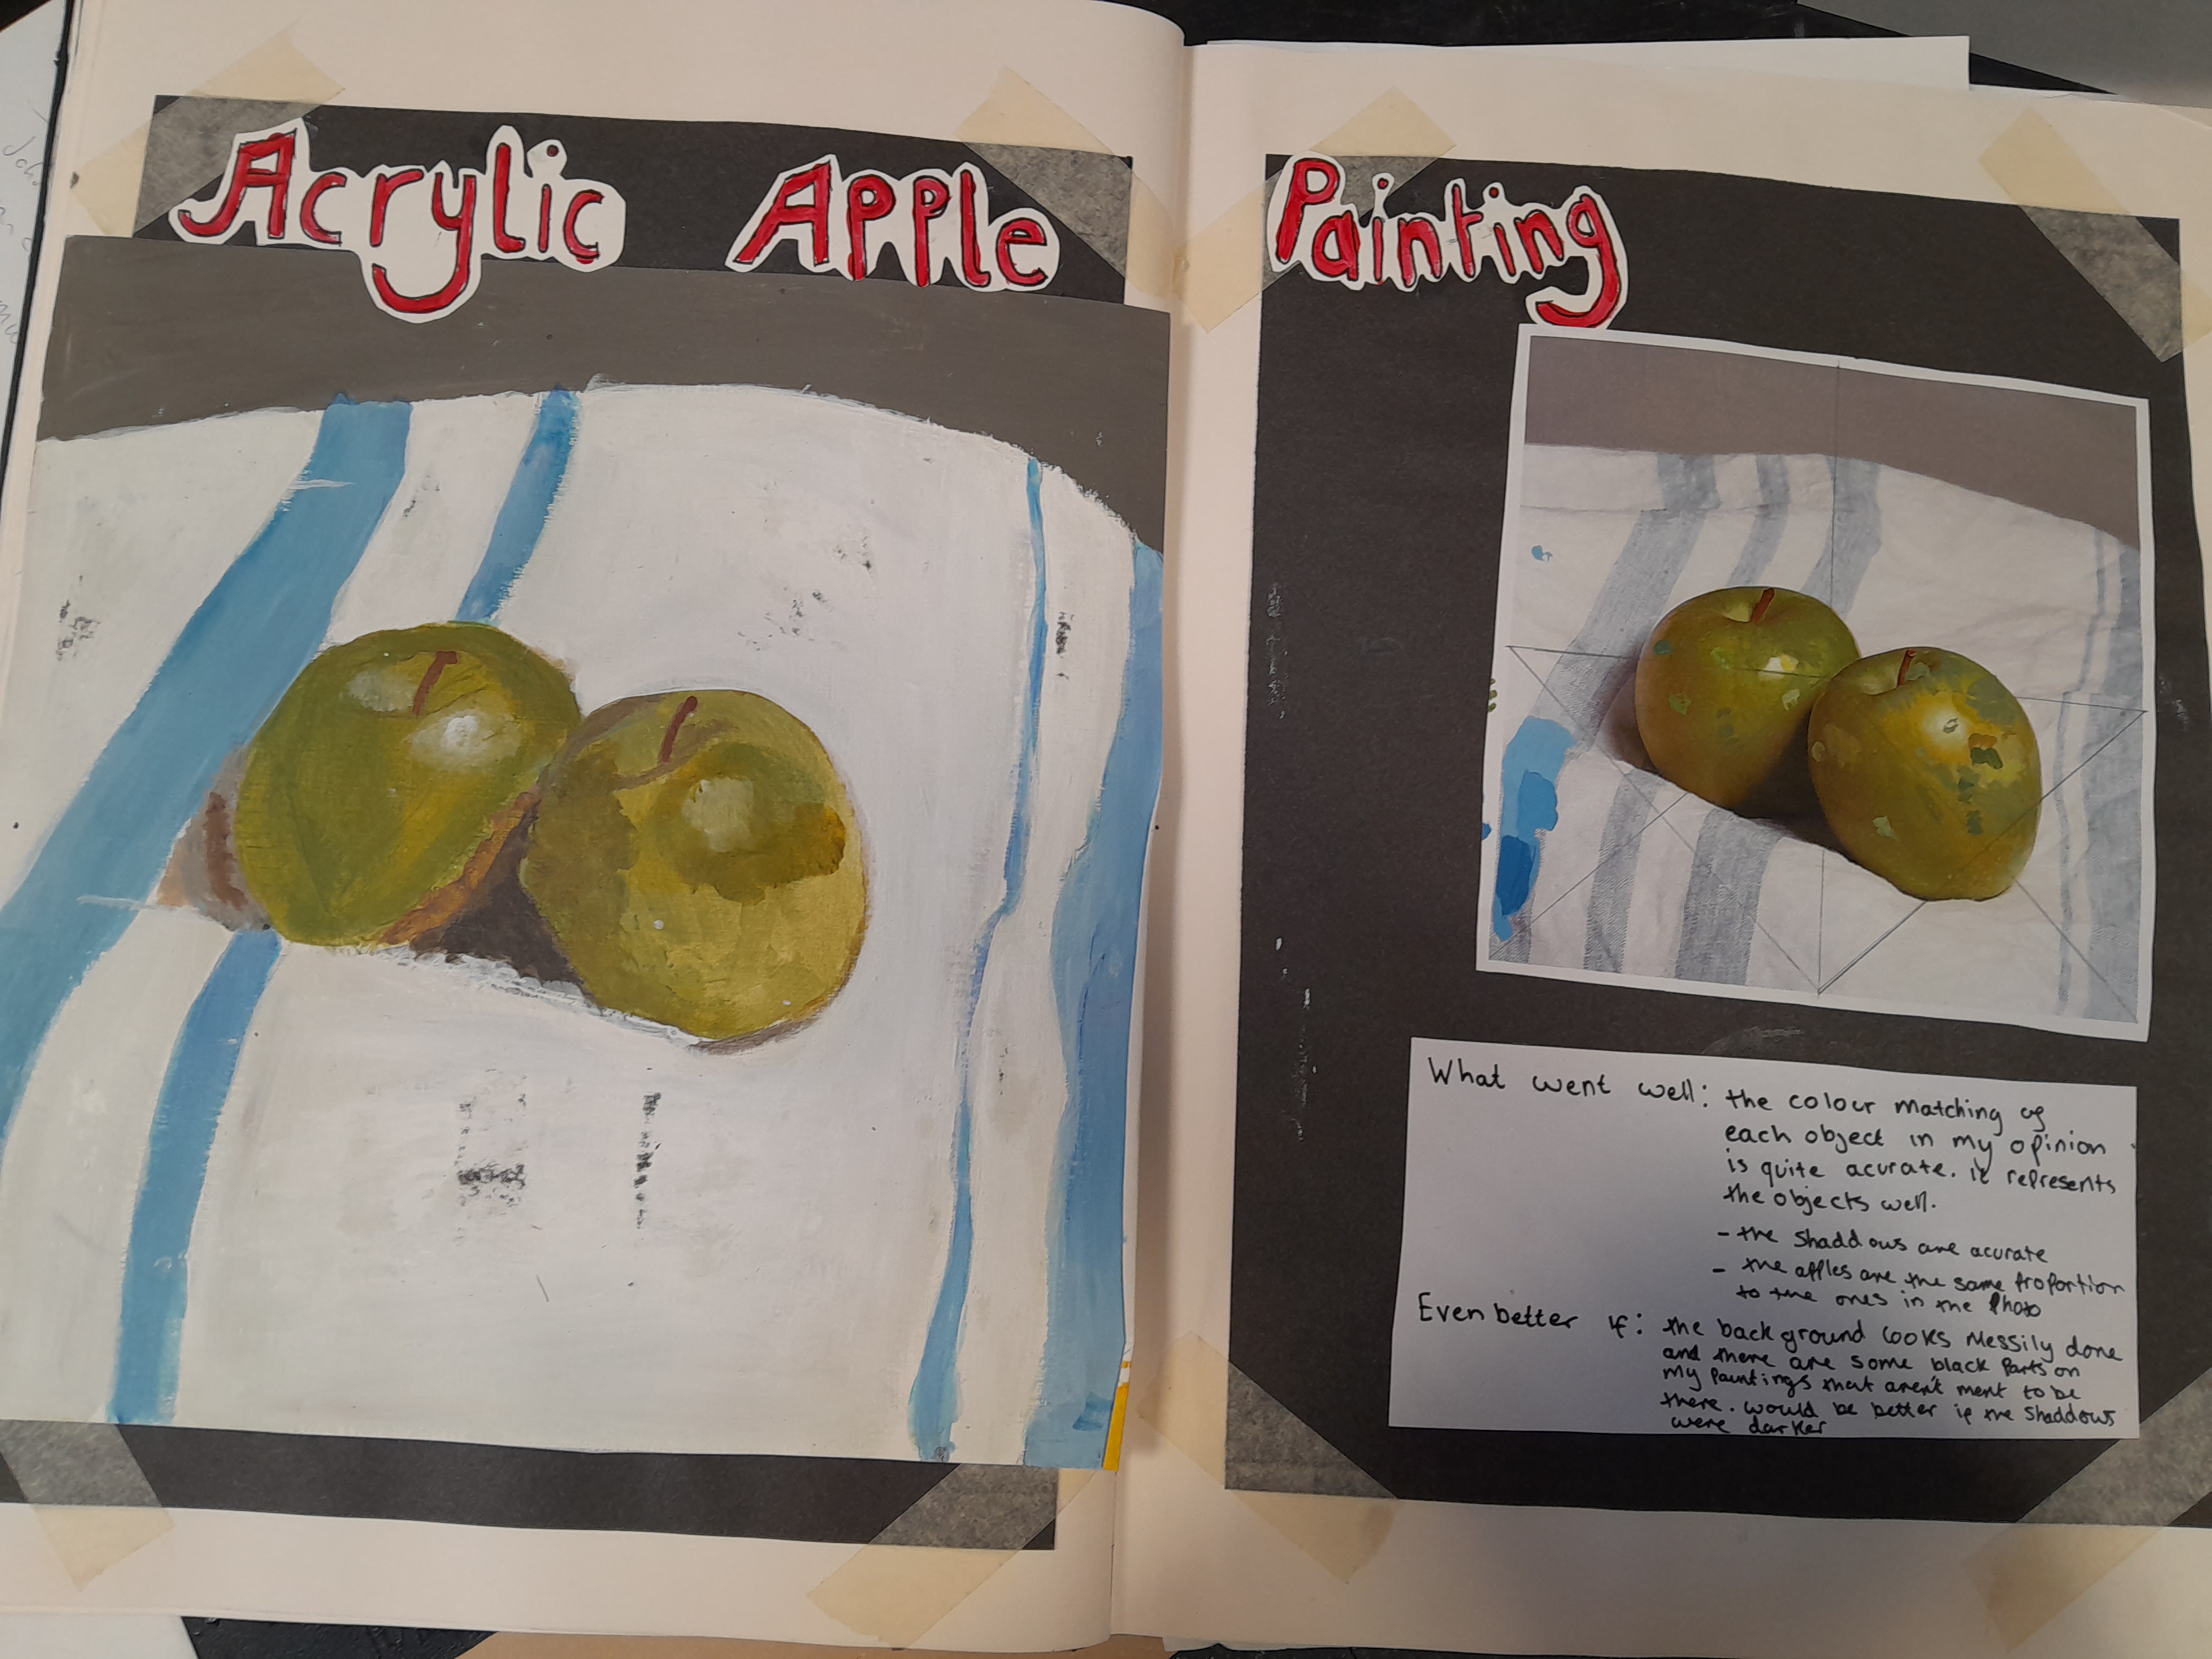 Acrylic Apple Painting
What went well: the colour matching of
each object in my opinion
is quite acurate. it represents
the objects well.
- the shaddows are acurate
- the apples are the same proportion
to the ones in the photo
Even better if: the background looks messily done
and there are some black parts on
my paintings that arent ment to be
there. would be better if the shaddows
were darker